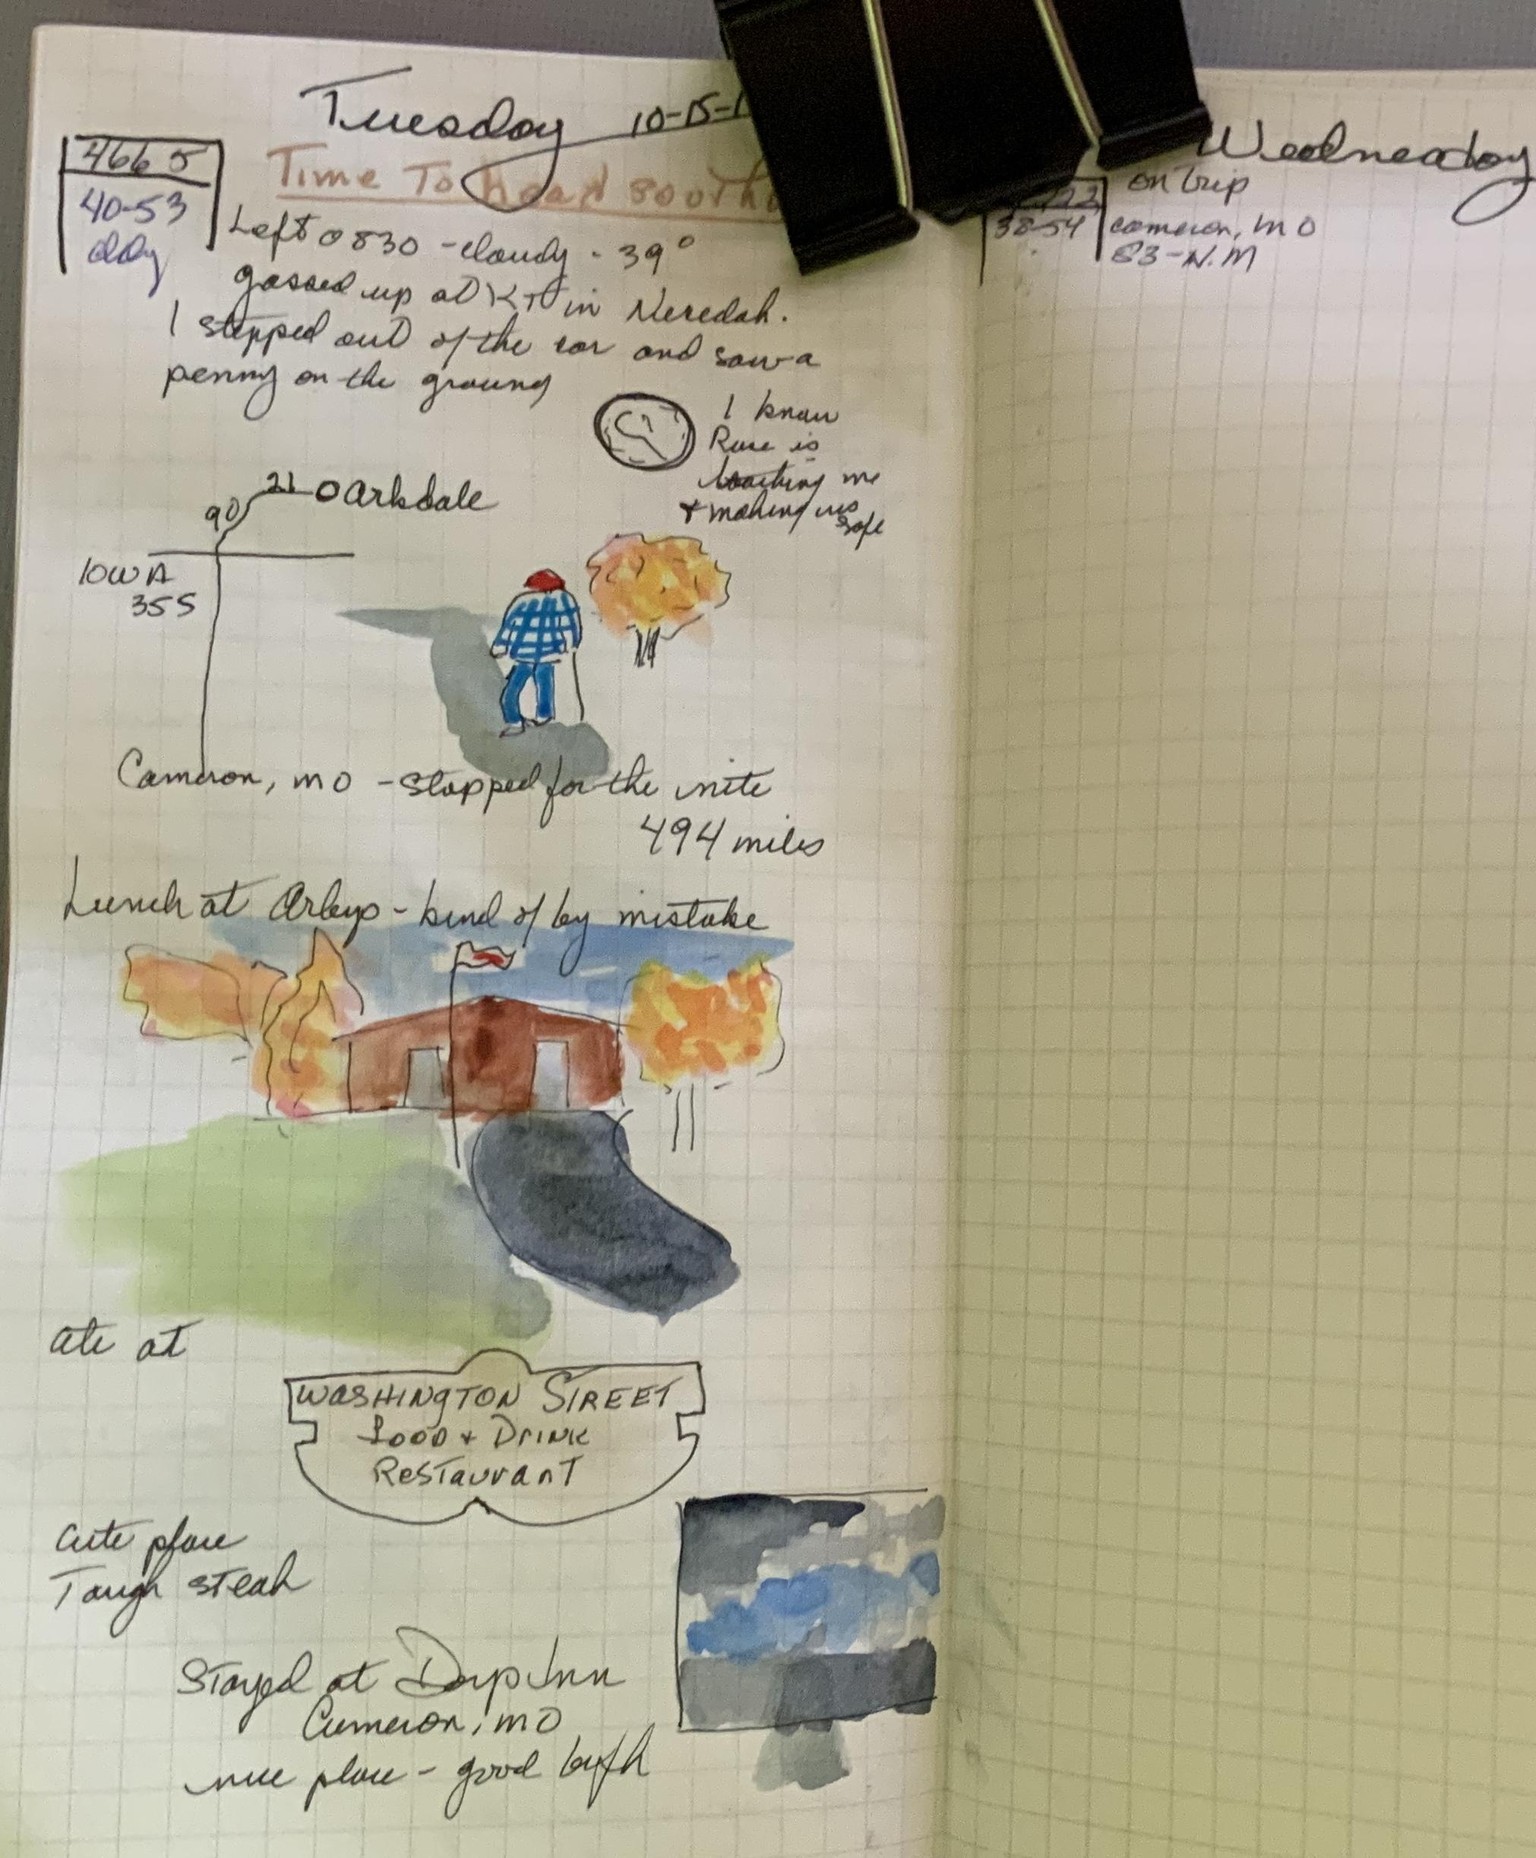 Tuesday 10-15-1
4665
40-53
day
Time To head south
Left 0830 - cloudy - 39°
gassed up at KT in Necedah.
I stepped out of the car and saw a
penny on the ground
I know
Rose is
watching me
+ making us
safe
21 Oarkdale
90
IOWA
35S
Cameron, MO - stopped for the nite
494 miles
Lunch at Arbys - kind of by mistake
ate at
WASHINGTON STREET
FOOD + DRINK
RESTAURANT
Cute place
Tough steak
Stayed at Days Inn
Cameron, MO
nice place - good bkfk
Wednesday
on trip
38-54
Cameron, MO
83-N.M